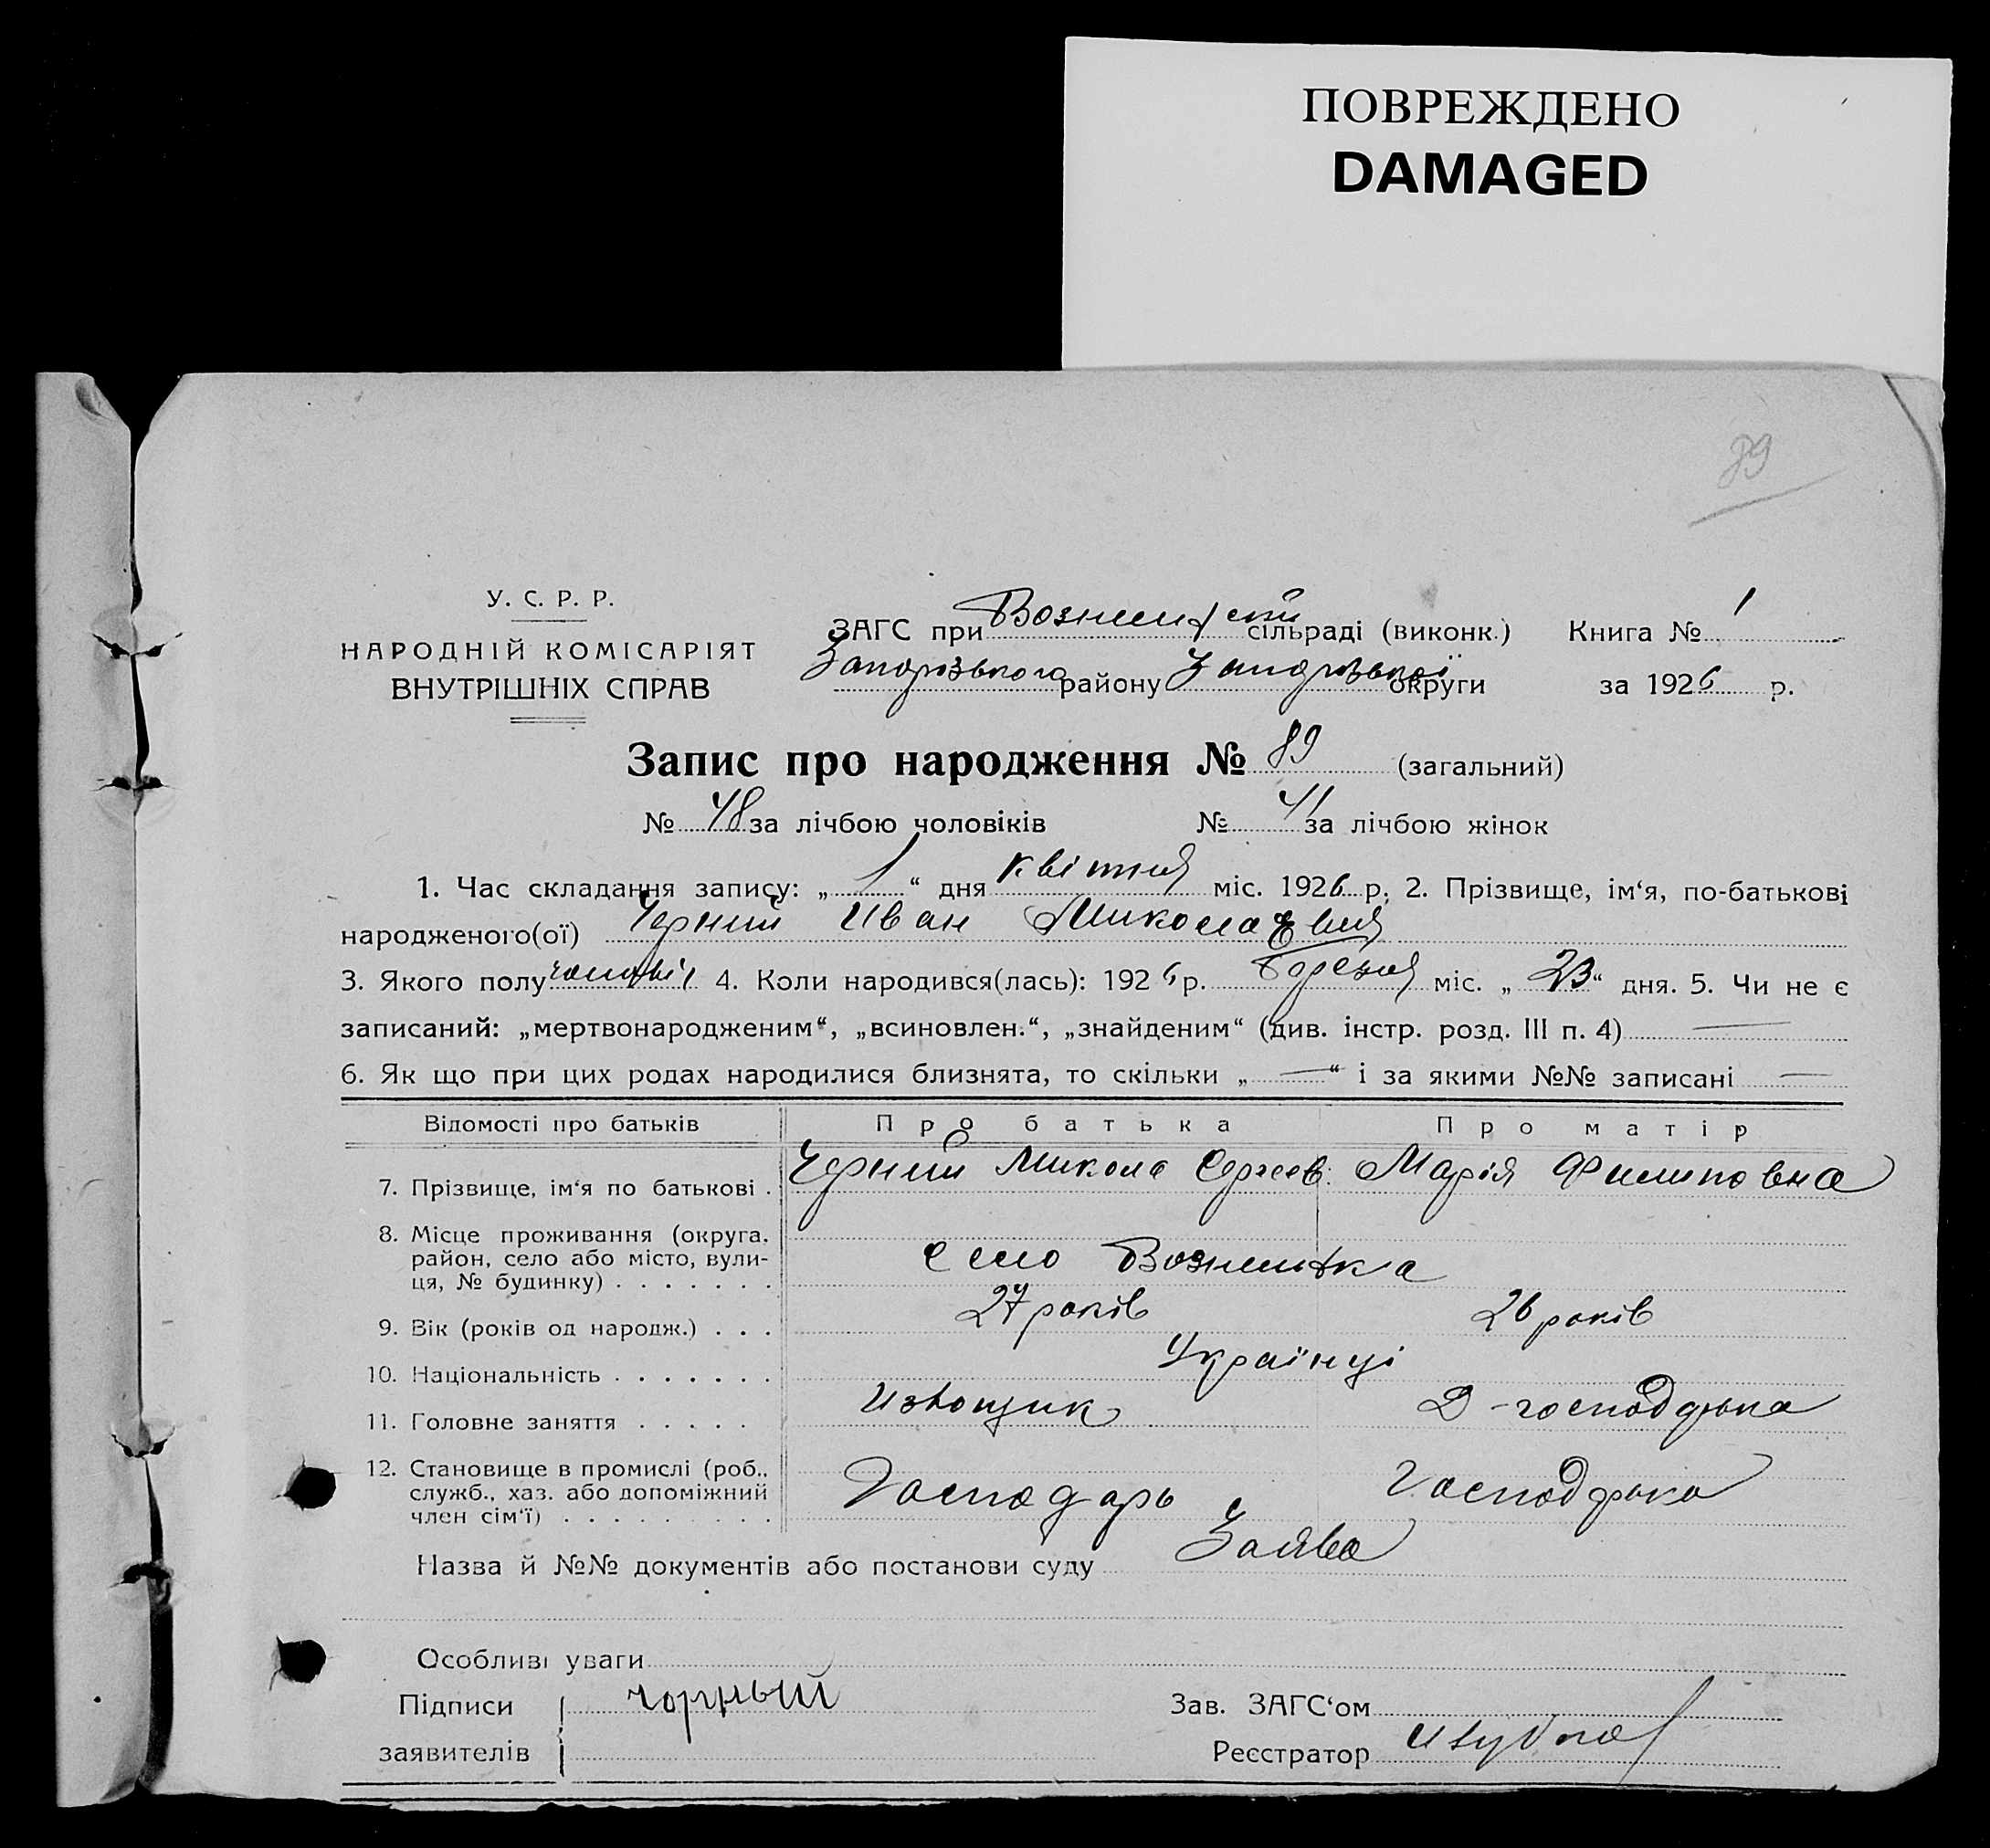 ПОВРЕЖДЕНО
DAMAGED
89
У. С. Р. Р.
НАРОДНІЙ КОМІСАРІЯТ
ВНУТРІШНІХ СПРАВ
ЗАГС при Вознесенській сільраді (виконк.) Книга № 1
Запорізького району Запорізької округи за 1926 р.
Запис про народження № 89 (загальний)
№ 48 за лічбою чоловіків № 41 за лічбою жінок
1. Час складання запису: „ 1 “ дня квітня міс. 1926 р. 2. Прізвище, ім‘я, по-батькові
народженого(ої) Черний Иван Миколаєвич
3. Якого полу 4. Коли народився(лась): 1926 р. Березня міс. „ 23 “ дня. 5. Чи не є
записаний: „мертвонародженим“, „всиновлен.“, „знайденим“ (див. інстр. розд. III п. 4) —
6. Як що при цих родах народилися близнята, то скільки „ — “ і за якими №№ записані —
Відомості про батьків Про батька Про матір
7. Прізвище, ім‘я по батькові . Черний Микола Сергеев. Марія Филиповна
8. Місце проживання (округа, район, село або місто, вули-
ця, № будинку) . . . . . . . Село Вознесенка
9. Вік (років од народж.) . . . 27 років 26 років
10. Національність . . . . . . . Українці
11. Головне заняття . . . . . Извощик Д-господарка
12. Становище в промислі (роб.,
служб., хаз. або допоміжний
член сім‘ї) . . . . . . . . . Господарь Господарка
Назва й №№ документів або постанови суду Заява
Особливі уваги
Підписи чорный Зав. ЗАГС‘ом
заявителів Реєстратор